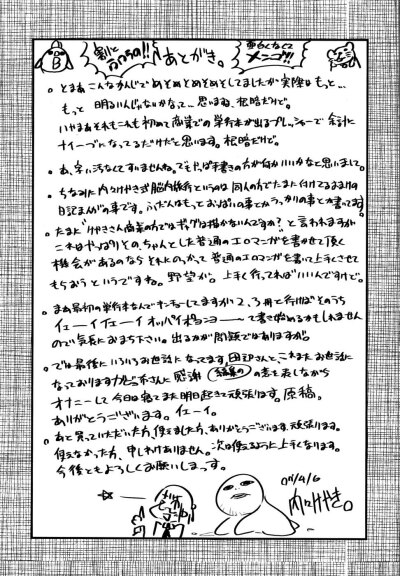 割と
おわちの!!
あとがき。
面白くなくて
メンゴ!!
B
。とまあこんなかんじでめそめそめそめそしてましたが実際はもっと…
もっと明るいんじゃないかなって…思いますね、根暗だけど。
いやまあそれもこれも初めて商業での単行本が出るプレッシャーで余計に
ナイーブになってるだけだと思います。根暗だけど。
。あ、字汚くてすいませんね。でもやっぱ手書きの方が何かいいかなと思いまして。
。ちなみに内々けやき式脳内旅行というのは同人の方でたまに付けてるまんまの
日記まんがの事です。ふだんはもっとおっぱいの事とかうっかりの事とか書いてます。
。たまに"けやきさん商業の方ではギャグは描かないんですか?"と言われますが
これはやっぱりその、ちゃんとした普通のエロマンガを書かせて頂く
機会があるのならそれにのっかって普通のエロマンガを書いて上手くさせて
もらおうというですね。野望が。上手く行ってればいいんですけど。
。まあ最初の単行本なんでキンチョーしてますが2、3冊と行けばそのうち
イェーイイェーイオッパイポヨンヨーーって書き始めるかもしれません
ので気長にお待ち下さい。出るかが問題ではありますが。
。では最後にいろいろお世話になってます、団記さんと、これまたお世話に
なっておりますカビ不さんに感謝の意を表しながら
オナニーして今日は寝てまた明日起きて頑張ります。原稿。
ありがとうございます。イェーイ。
。あと買っていただいた方、使えました方、ありがとうございます、頑張ります。
使えなかった方、申しわけありません。次は使えるように上手くなります。
今後ともよろしくお願いしまっす。
07/4/6
内々けやき。